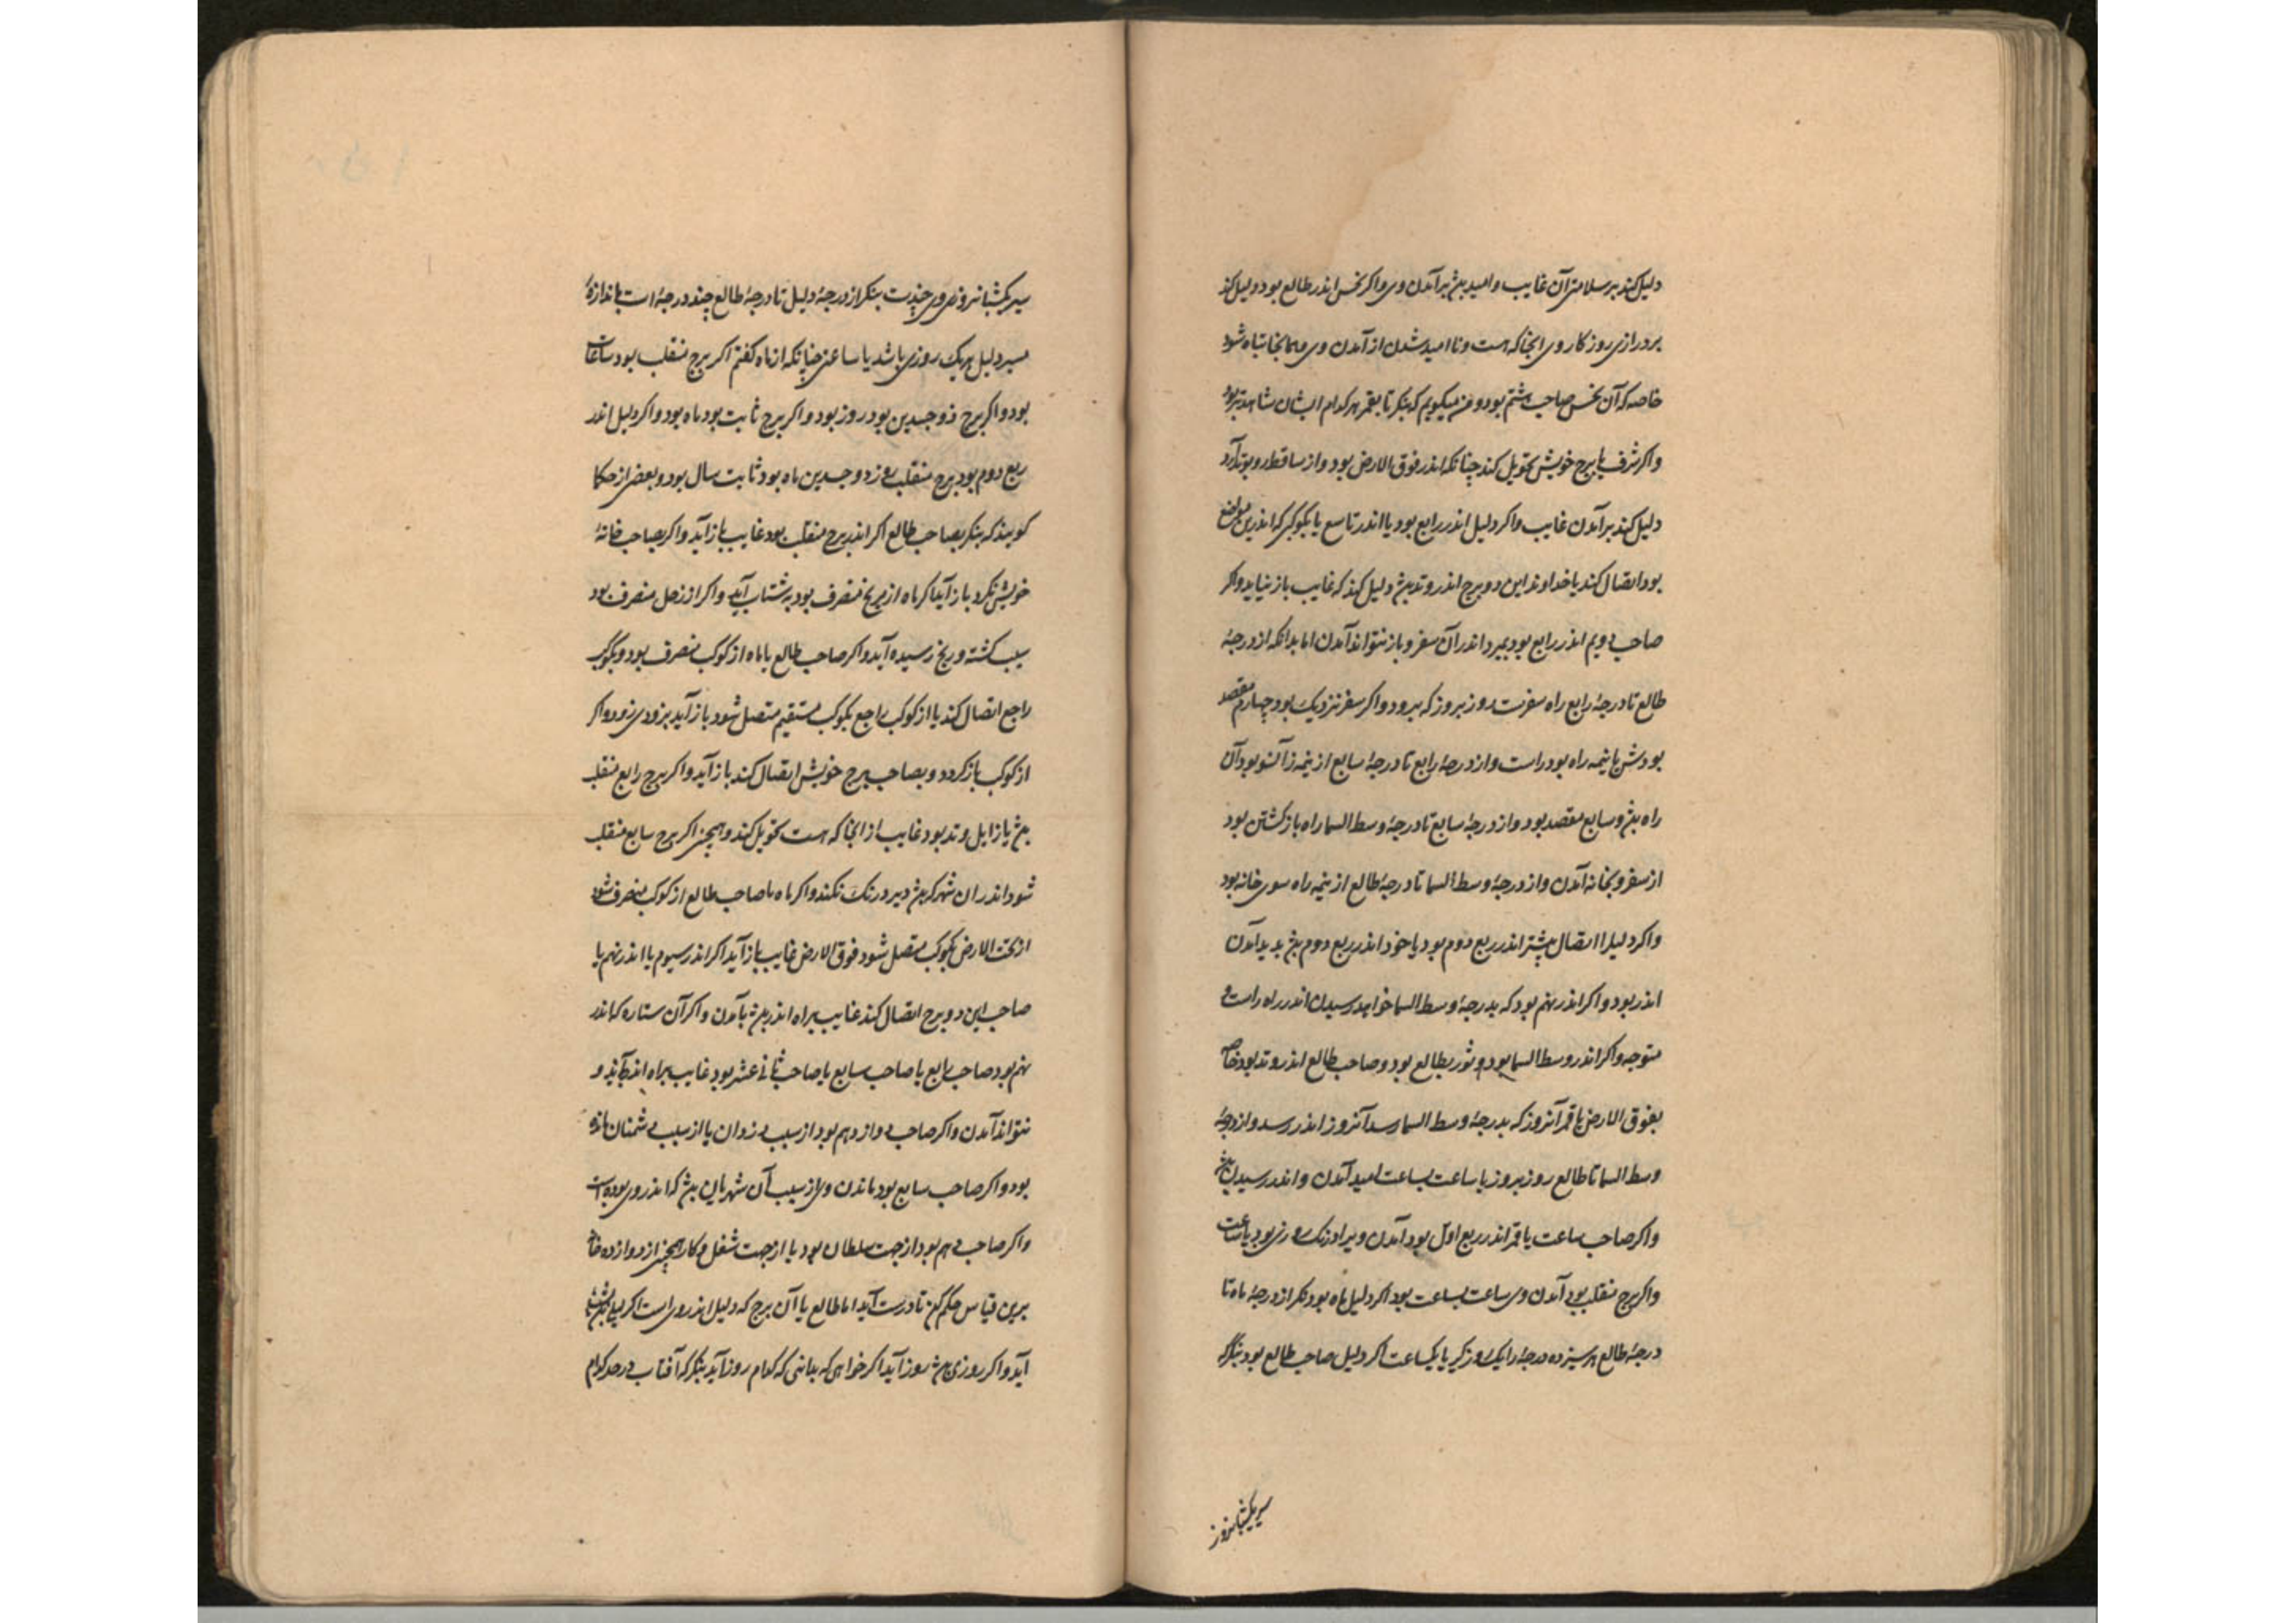 دلیل کند بر سلامتی آن غایب و امید بیش برآمدن وی و اکر نحس اندر طالع بود دلیل کند
بر درازی روزکار وی انجا که هست و ناامید شدن از آمدن وی و همانجا تباه شود
خاصه که آن نحس صاحب هشتم بود و من میکویم که بنکر تا بقمر هر کدام ایشان شاهدتر بود
و اکر شرف یا برج خویش تحویل کند چنانکه اندر فوق الارض بود و از ساقط روی بوتد آرد
دلیل کند برآمدن غایب و اکر دلیل اندر رابع بود یا اندر تاسع یا بکوکبی که اندرین مواضع
بود اتصال کند یا خداوند این دو برج اندر وتد بیش دلیل کند که غایب باز نیاید و اکر
صاحب دویم اندر رابع بود بمیرد اندر آن سفر و باز نتواند آمدن اما بدانکه از درجهٔ
طالع تا درجهٔ رابع راه سفرست روز بروز که برود و اکر سفر نزدیک بود چهارم مقصد
بودش با نیمه راه بود راست و از درجهٔ رابع تا درجهٔ سابع از نیمه زآنسو بود آن
راه بیش و سابع مقصد بود و از درجهٔ سابع تا درجهٔ وسط السما راه باز کشتن بود
از سفر و بخانه آمدن و از درجهٔ وسط السما تا درجهٔ طالع از نیمه راه سوی خانه بود
و اکر دلیل را اتصال بیشتر اندر ربع دوم بود یا خود اندر ربع دوم بیش پدید آمدن
اندر بود و اکر اندر نهم بود که بدرجهٔ وسط السما خواهد رسیدن اندر راه راست و
متوجه و اکر اندر وسط السما بود و بطالع بود و صاحب طالع اندر وتد بود خاصه
بفوق الارض با قمر آنروز که بدرجهٔ وسط السما رسد آنروز اندر رسد و از درجهٔ
وسط السما تا طالع روز بروز یا ساعت بساعت امید آمدن و اندر رسیدن بیش
و اکر صاحب ساعت یا قمر اندر ربع اول بود آمدن ویرا درنک روزی بود یا ساعت
و اکر برج منقلب بود آمدن وی ساعت بساعت بود اکر دلیل ماه بود بنکر از درجهٔ ماه تا
درجهٔ طالع هر سیزده درجه را یک روز کیر یا یکساعت اکر دلیل صاحب طالع بود بنکر که
سیر یکشبانروز
سیر یکشبانروزی وی چندست بنکر از درجهٔ دلیل تا درجهٔ طالع چند درجه است باندازهٔ
مسیر دلیل هر یک روزی باشد یا ساعتی چنانکه از ماه کفتم اکر برج منقلب بود ساعات
بود و اکر برج ذوجسدین بود روز بود و اکر برج ثابت بود ماه بود و اکر دلیل اندر
ربع دوم بود برج منقلب روز ذوجسدین ماه بود ثابت سال بود و بعضی از حکما
کویند که بنکر بصاحب طالع اکر اندر برج منقلب بود غایب باز آید و اکر بصاحب خانهٔ
خویش نکرد باز آید اکر ماه از مریخ منصرف بود به شتاب آید و اکر از زحل منصرف بود
کشته و رنج رسیده آید و اکر صاحب طالع یا ماه از کوکب منصرف بود و بکوکبی
راجع اتصال کند یا از کوکب راجع بکوکب مستقیم متصل شود باز آید بزودی زود و اکر
از کوکب بازکردد و بصاحب برج خویش اتصال کند باز آید و اکر برج رابع منقلب
بیش یا زایل وتد بود غایب از انجا که هست تحویل کند و همچنین اکر برج سابع منقلب
شود اندر ان شهر که بیش دیر درنک نکند و اکر ماه یا صاحب طالع از کوکب منصرف شود
از تحت الارض بکوکب متصل شود فوق الارض غایب باز آید اکر اندر سیوم یا اندر نهم یا
صاحب این دو برج اتصال کند غایب براه اندر بیش بآمدن و اکر آن ستاره که اندر
نهم بود صاحب رابع یا صاحب سابع یا صاحب ثانی عشر بود غایب براه اندر آید و
نتواند آمدن و اکر صاحب دوازدهم بود از سبب دزدان یا از سبب دشمنان مانده
بود و اکر صاحب سابع بود ماندن وی از سبب آن شهریان بیش که اندر وی بوده است
و اکر صاحب دهم بود از جهت سلطان بود یا از جهت شغل و کار همچنین از دوازده خانه
برین قیاس حکم کن تا درست آید اما طالع یا آن برج که دلیل اندر وی است اکر لیلی بیش بشب
آید و اکر روزی بیش روز آید اکر خواهی که بدانی که کدام روز آید بنکر که آفتاب در حد کدام